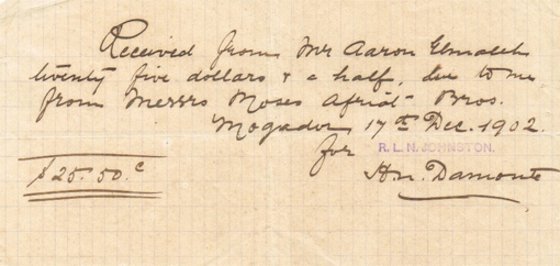 Received from Mr Aaron Elmaleh
twenty five dollars & a half, due to me
from Messrs Moses Afriat Bros.
Mogador 17th Dec. 1902.
for R. L. N. JOHNSTON.
$ 25.50.c
Damonte